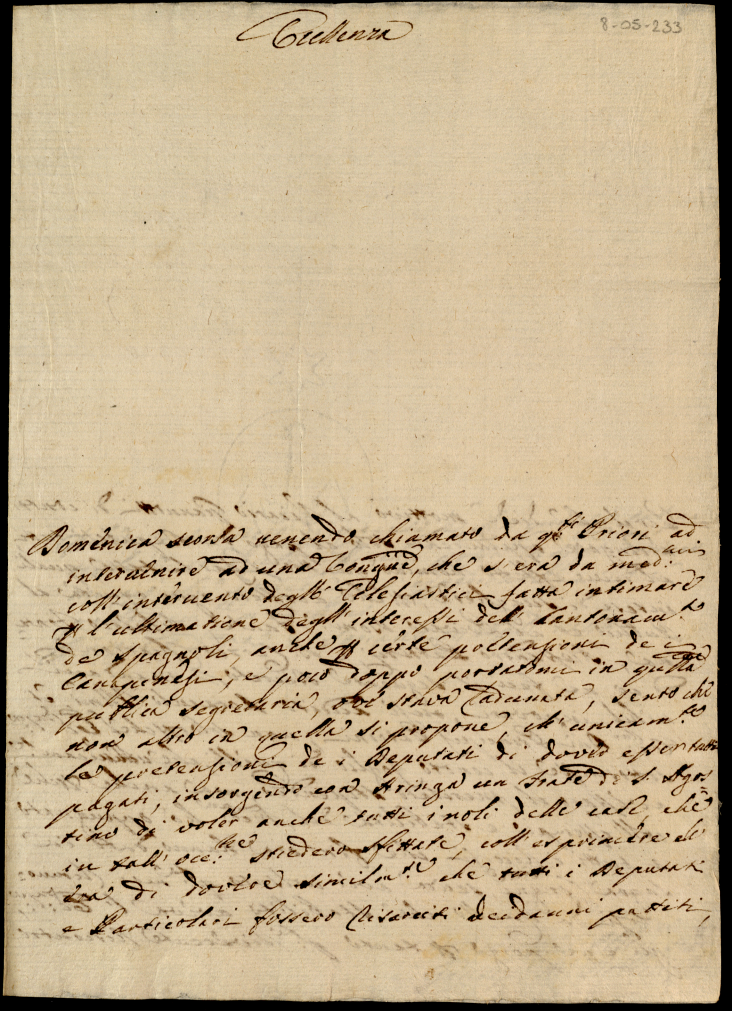 8-05-233
Eccellenza
Domenica scorsa venendo chiamato da q.sti Priori ad
intervenire ad una Congne, che s'era da med.mi
coll'intervento degl' Eclesiastici fatta intimare
p l'ultimatione degl' interessi dell' Cantonam.to
de Spagnoli, anche p certe pretensioni de i
Campenesi, e poco doppo portatomi in questa
publica segretaria, ove stava radunata, sento che
non altro in quella si propone, ch' unicam.te
le pretensioni de i Deputati di dover esser tutti
pagati, insorgendo con stringa un Frate di S. Agos
tino di voler anche tutti i noli delle case, che
in tall' occ.ne stiedero sfittate, coll' esprimere el
di dovere similm.te che tutti i Deputati
e Particolari fossero risarciti dei danni patiti,